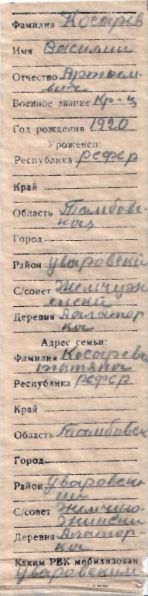 Фамилия Косарев
Имя Василий
Отчество Артем-
вич
Военное звание Кр-ц
Год рождения 1920
Уроженец
Республика РСФСР
Край
Область Тамбовс-
кая
Город
Район Уваровский
С/совет Жемчужн-
енский
Деревня
Адрес семьи:
Фамилия Косарева
Татяна
Республика РСФСР
Край
Область Тамбовск
Город
Район Уваровск-
ий
С/совет
Деревня
Каким РВК мобилизован
Уваровским